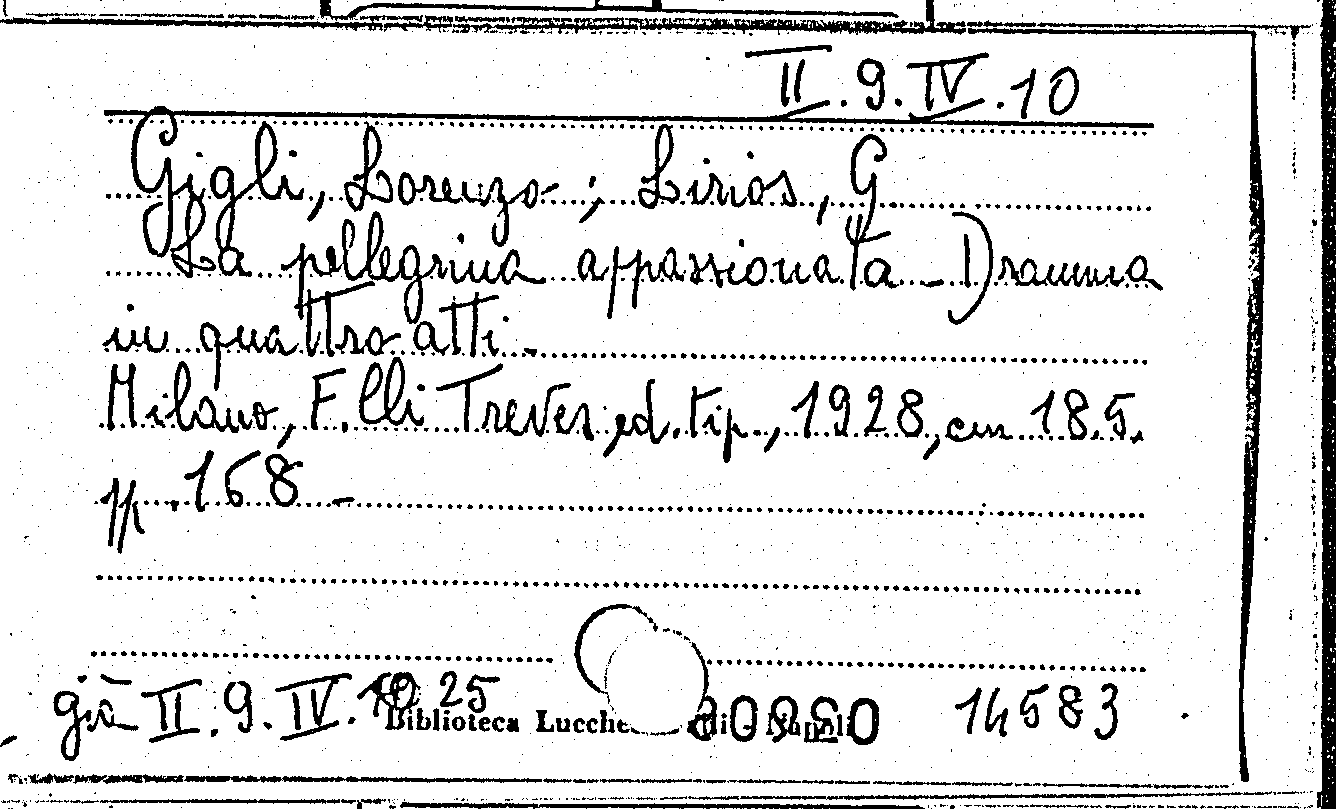 II.9.IV.10
Gigli, Lorenzo; Lirios, G
La pellegrina appassionata - Dramma
in quattro atti -
Milano, F.lli Treves, ed. tip., 1928, cm 18.5.
pp. 168 -
già II.9.IV. 25
Biblioteca 14583